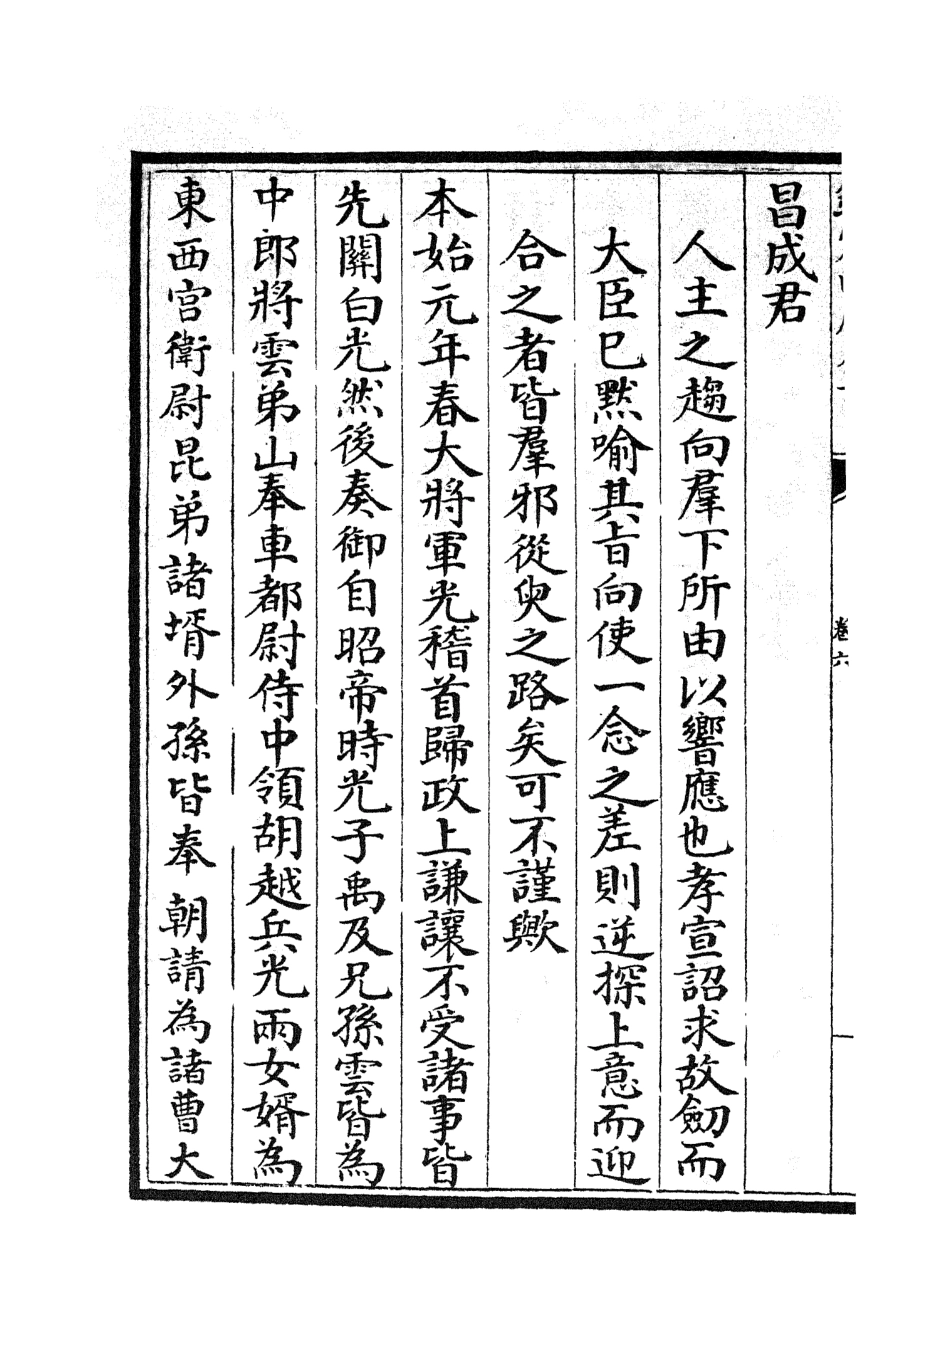 卷六
昌成君
人主之趨向羣下所由以響應也孝宣詔求故劒而
大臣已黙喻其㫖向使一念之差則逆探上意而迎
合之者皆羣邪從臾之路矣可不謹歟
本始元年春大將軍光稽首歸政上謙讓不受諸事皆
先關白光然後奏御自昭帝時光子禹及兄孫雲皆為
中郎將雲弟山奉車都尉侍中領胡越兵光兩女婿為
東西宫衛尉昆弟諸壻外孫皆奉朝請為諸曹大